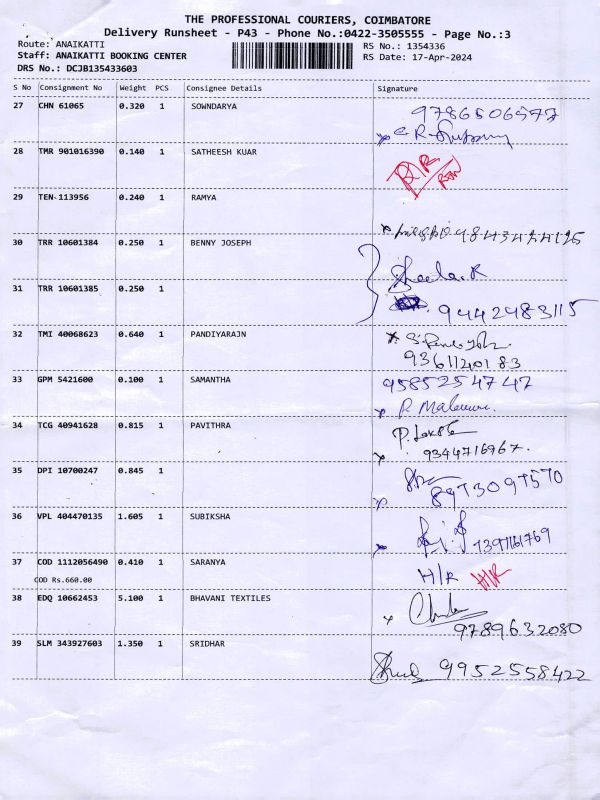 THE PROFESSIONAL COURIERS, COIMBATORE
Delivery Runsheet - P43 - Phone No.:0422-3505555 - Page No.:3
Route: ANAIKATTI RS No.: 1354336
Staff: ANAIKATTI BOOKING CENTER RS Date: 17-Apr-2024
DRS No.: DCJB135433603
S No Consignment No Weight PCS Consignee Details Signature
27 CHN 61065 0.320 1 SOWNDARYA
9786506577
28 TMR 901016390 0.140 1 SATHEESH KUAR
29 TEN 113956 0.240 1 RAMYA
30 TRR 10601384 0.250 1 BENNY JOSEPH
Sheela.R
31 TRR 10601385 0.250 1
9442483115
32 TMI 40068623 0.640 1 PANDIYARAJN
9361120183
33 GPM 5421600 0.100 1 SAMANTHA
9585254747
34 TCG 40941628 0.815 1 PAVITHRA
9344716967.
35 DPI 10700247 0.845 1
36 VPL 404470135 1.605 1 SUBIKSHA
37 COD 1112056490 0.410 1 SARANYA
H/R H/R
COD Rs.660.00
38 EDQ 10662453 5.100 1 BHAVANI TEXTILES
9789632080
39 SLM 343927603 1.350 1 SRIDHAR
9952558422